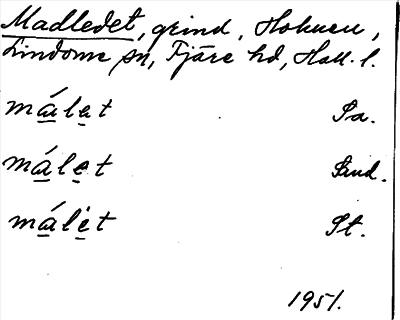 Madledet, grind, Hoknen,
Lindome sn, Fjäre hd, Hall. l.
má̱le̱t Sa.
má̱le̱t Smd.
má̱lè̱t St.
1951.